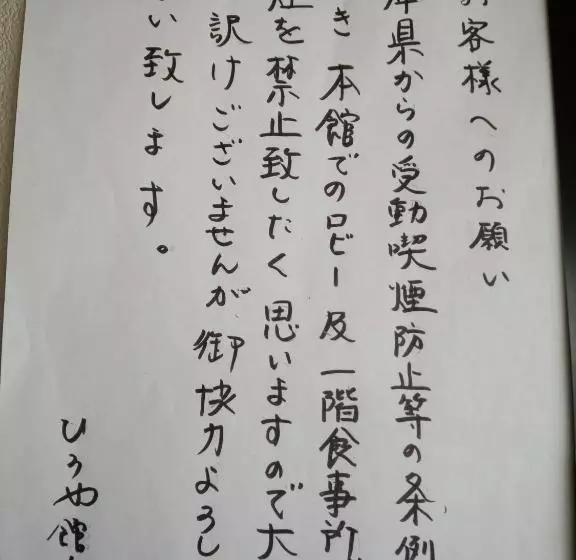 お客様へのお願い
庫県からの受動喫煙防止等の条例
き 本館でのロビー及一階食事所
煙を禁止致したく思いますので大
訳けございませんが御協力よろし
い致します。
ひろや館